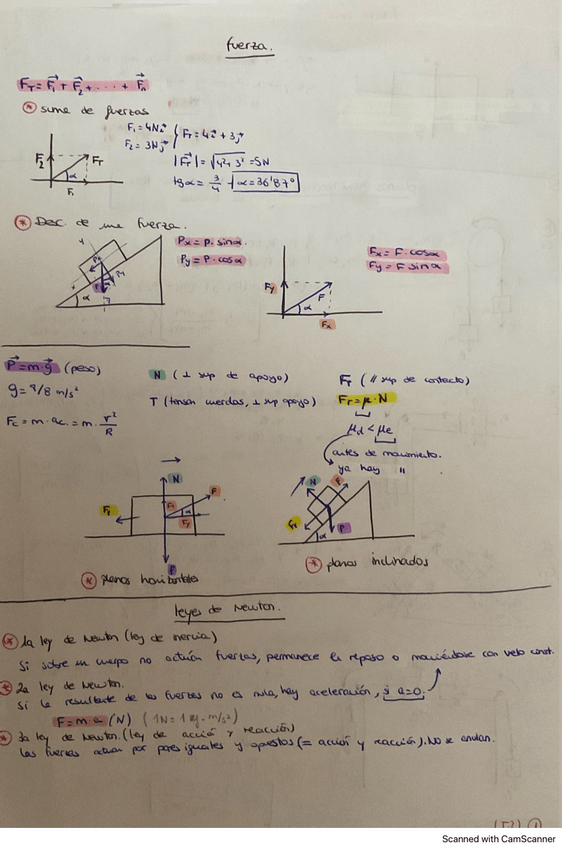 fuerza.
F_T = F⃗₁ + F⃗₂ + .... + F⃗ₙ
* suma de fuerzas
F₁ = 4N i⃗
F₂ = 3N j⃗
F_T = 4i⃗ + 3j⃗
|F_T⃗| = √4²+3² = 5N
tg α = 3/4 → α = 36'87°
F₂ F_T α F₁
* Desc. de una fuerza.
Px = P. sinα
Py = P. cosα
Fx = F. cosα
Fy = F sinα
α
Fy F α Fx
P⃗ = m.g⃗ (peso)
g = 9/8 m/s²
N (⊥ sup de apoyo)
T (tensión cuerdas, ⊥ sup apoyo)
Fr (// sup de contacto)
Fr = μ. N
μd < μe
antes de movimiento.
ya hay "
N F Fr α P
N F Fr α P
* planos horizontales
* planos inclinados
leyes de Newton.
* 1a ley de Newton (ley de inercia)
Si sobre un cuerpo no actúan fuerzas, permanece en reposo o moviéndose con velo const.
* 2a ley de Newton.
Si la resultante de las fuerzas no es nula, hay aceleración, si a=0.
F = m.a (N) (1N = 1 kg. m/s²)
* 3a ley de Newton. (ley de acción y reacción)
las fuerzas actúan por pares iguales y opuestos (= acción y reacción). No se anulan.
Scanned with CamScanner